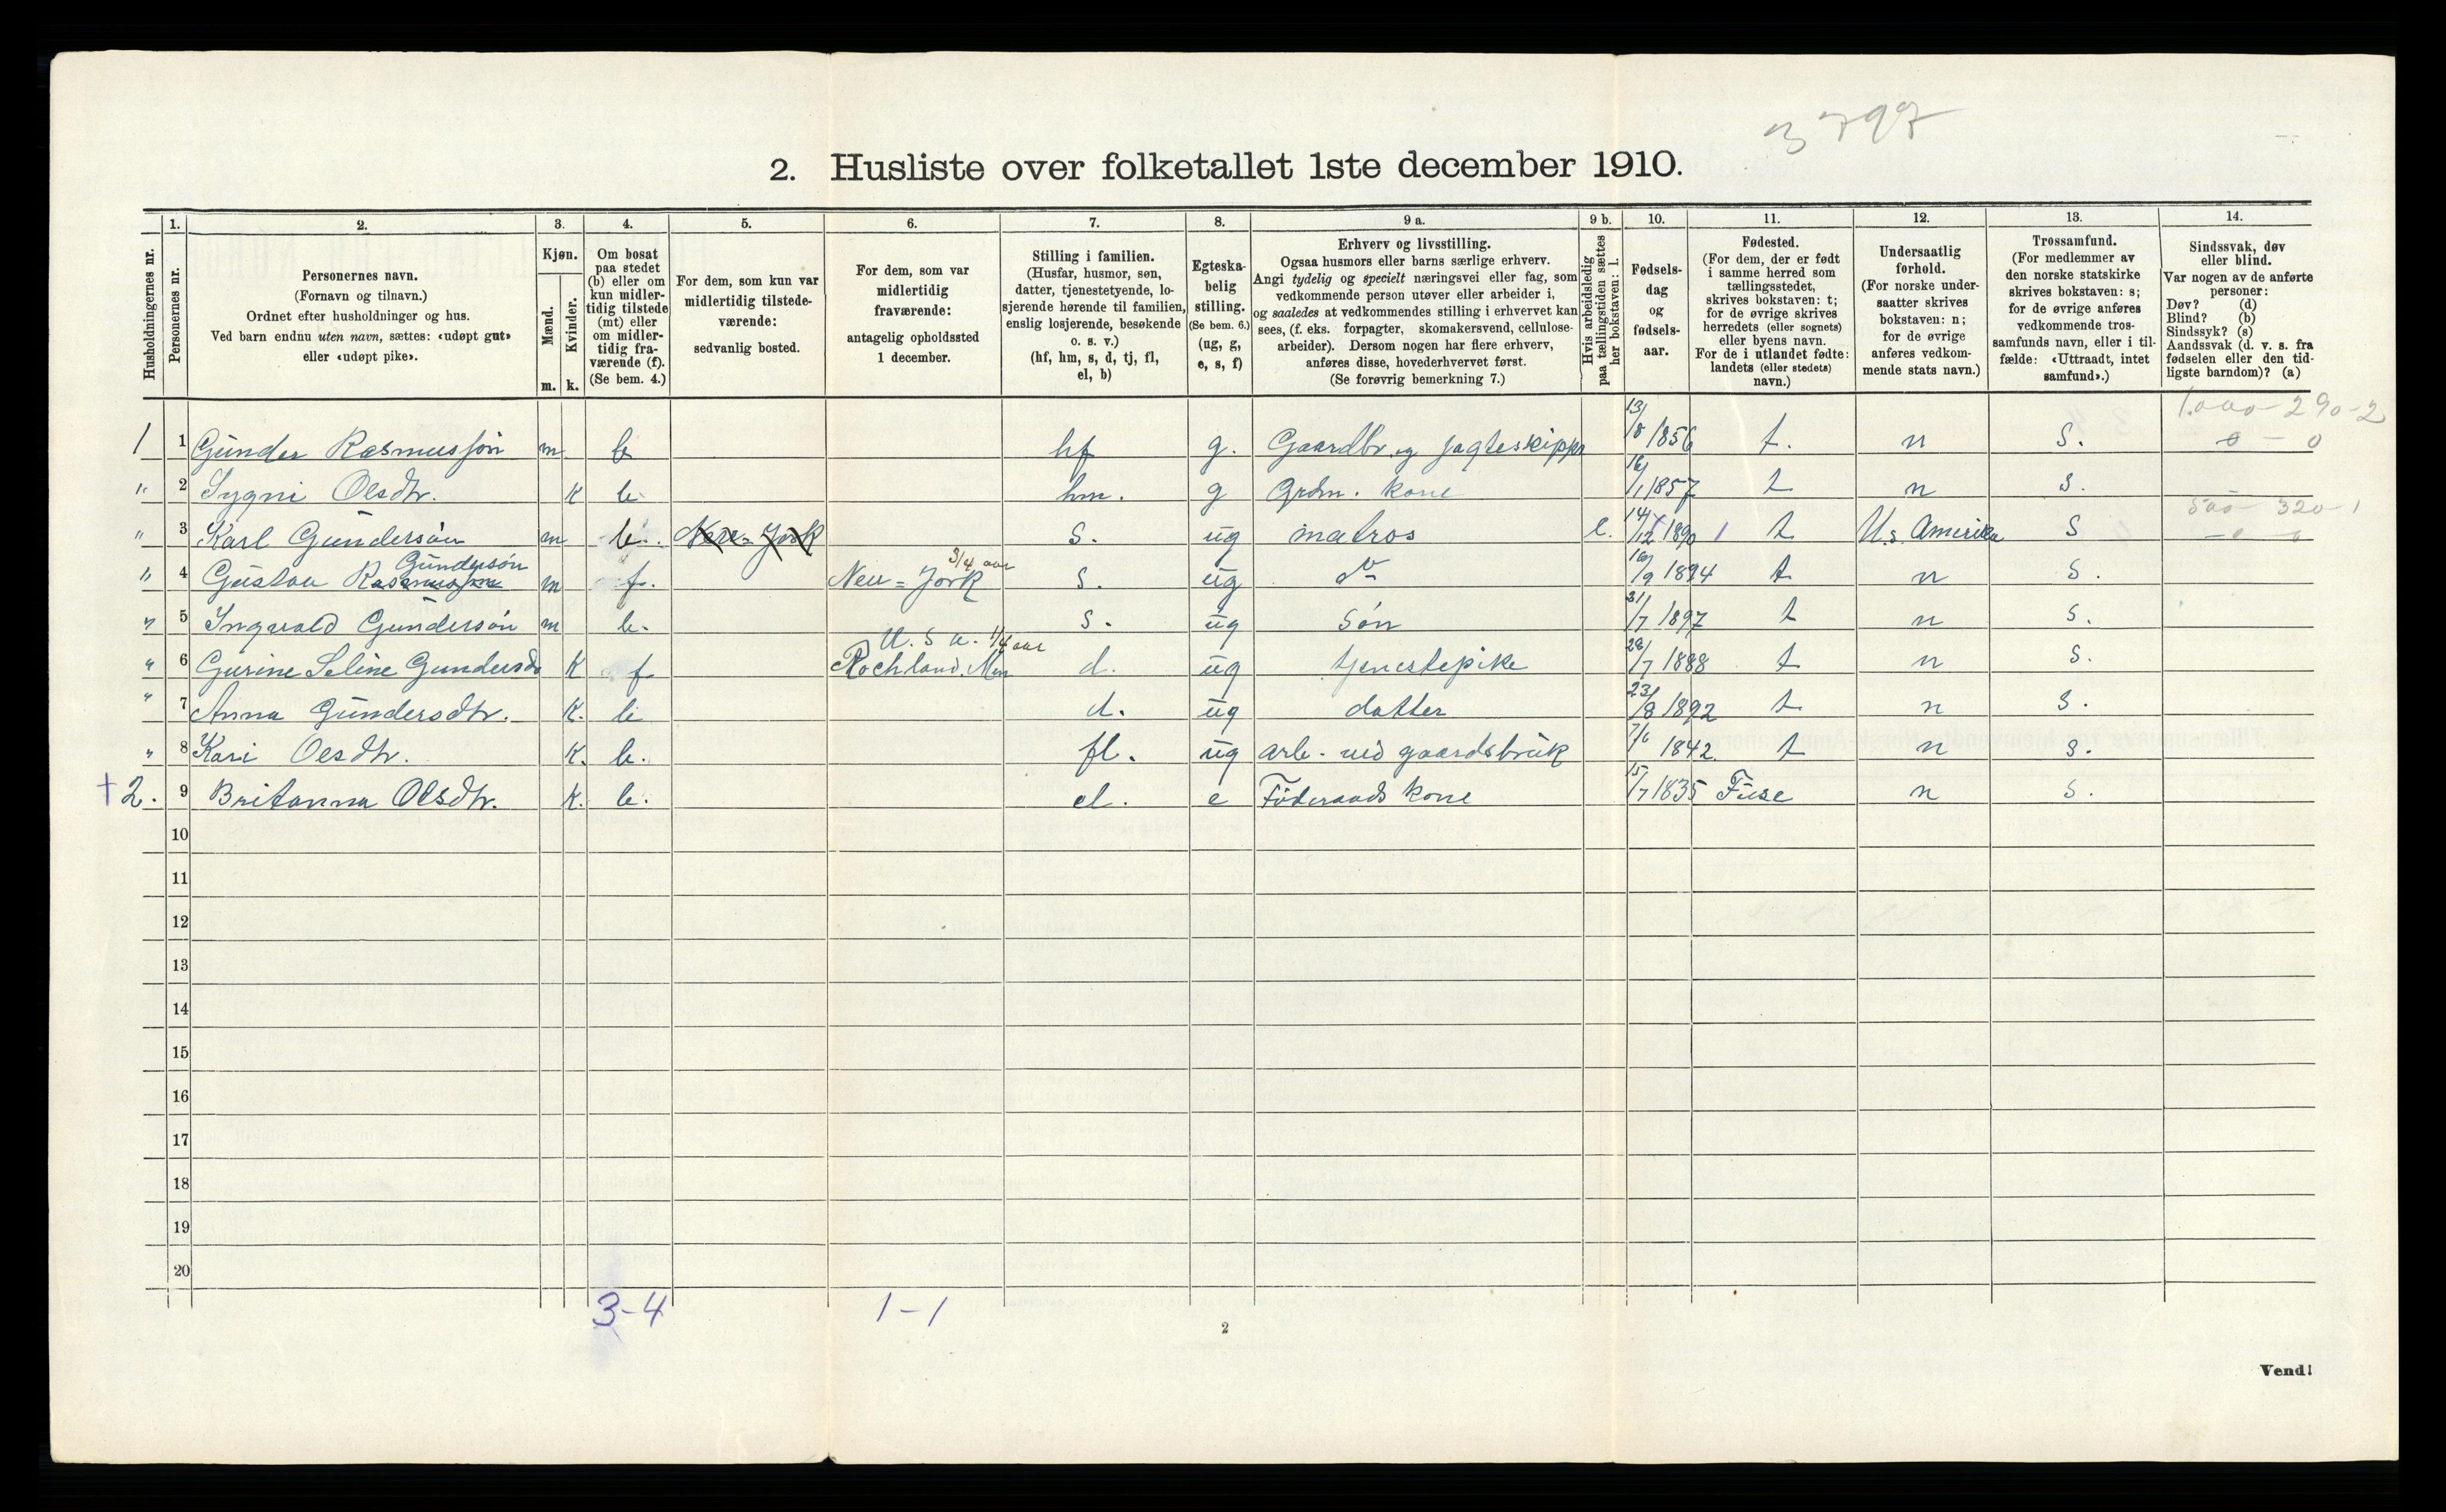 3797
2. Husliste over folketallet 1ste december 1910.
Husholdningernes nr.
1.
Personernes nr.
2.
Personernes navn.
(Fornavn og tilnavn.)
Ordnet efter husholdninger og hus.
Ved barn endnu uten navn, sættes: «udøpt gut»
eller «udøpt pike».
3.
Kjøn.
Mænd.
m.
Kvinder.
k.
4.
Om bosat
paa stedet
(b) eller om
kun midler-
tidig tilstede
(mt) eller
om midler-
tidig fra-
værende (f).
(Se bem. 4.)
5.
For dem, som kun var
midlertidig tilstede-
værende:
sedvanlig bosted.
6.
For dem, som var
midlertidig
fraværende:
antagelig opholdssted
1 december.
7.
Stilling i familien.
(Husfar, husmor, søn,
datter, tjenestetyende, lo-
sjerende hørende til familien,
enslig losjerende, besøkende
o. s. v.)
(hf, hm, s, d, tj, fl,
el, b)
8.
Egteska-
belig
stilling.
(Se bem. 6.)
(ug, g,
e, s, f)
9 a.
Erhverv og livsstilling.
Ogsaa husmors eller barns særlige erhverv.
Angi tydelig og specielt næringsvei eller fag, som
vedkommende person utøver eller arbeider i,
og saaledes at vedkommendes stilling i erhvervet kan
sees, (f. eks. forpagter, skomakersvend, cellulose-
arbeider). Dersom nogen har flere erhverv,
anføres disse, hovederhvervet først.
(Se forøvrig bemerkning 7.)
9 b.
Hvis arbeidsledig
paa tællingstiden sættes
her bokstaven: l.
10.
Fødsels-
dag
og
fødsels-
aar.
11.
Fødested.
(For dem, der er født
i samme herred som
tællingsstedet,
skrives bokstaven: t;
for de øvrige skrives
herredets (eller sognets)
eller byens navn.
For de i utlandet fødte:
landets (eller stedets)
navn.)
12.
Undersaatlig
forhold.
(For norske under-
saatter skrives
bokstaven: n;
for de øvrige
anføres vedkom-
mende stats navn.)
13.
Trossamfund.
(For medlemmer av
den norske statskirke
skrives bokstaven: s;
for de øvrige anføres
vedkommende tros-
samfunds navn, eller i til-
fælde: «Uttraadt, intet
samfund».)
14.
Sindssvak, døv
eller blind.
Var nogen av de anførte
personer:
Døv? (d)
Blind? (b)
Sindssyk? (s)
Aandssvak (d. v. s. fra
fødselen eller den tid-
ligste barndom)? (a)
1.000 - 290 - 2
1 1 Gunder Rasmussøn m b hf g. Gaardbr. og jagteskippr 13/8 1856 t. n s. 0 - 0
" 2 Sygni Olsdtr. K b hm. g Grdm. kone 16/1 1857 t n s.
500 - 320 - 1
" 3 Karl Gundersøn m b. New-York s. ug matros l. 14/12 1890 t U.s. Amerika s - 0 0
Gundersøn 3/4 aar
" 4 Gustav Rasmussøn m f. New=York s. ug do 16/9 1894 t n s.
" 5 Ingvald Gundersøn m b. s. ug søn 31/7 1897 t n s.
U. S. a. 1/4 aar
" 6 Gurine Seline Gundersd K f. Rochland. Men d. ug tjenestepike 28/7 1888 t n s.
" 7 Anna Gundersdtr. K. b d. ug datter 23/8 1892 t n s.
" 8 Kari Olsdtr. K. b. fl. ug arb. ved gaardsbruk 7/6 1842. t n s.
+ 2. 9 Britanna Olsdtr. K. b. el. e Föderaads kone 15/7 1835 Fuse n s.
10
11
12
13
14
15
16
17
18
19
20
3-4 1-1
2
Vend!